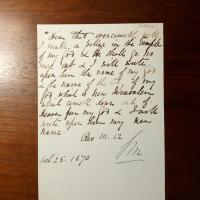 "Him that overcometh will
I make a pillar in the temple
of my God & he shall go no
more out & I will write
upon him the name of my God
& the name of the city of my
God which is new Jerusalem
which cometh down out of
Heaven from my God & I will
write upon him my new
name.
Rev III. 12
Feb 25. 1870